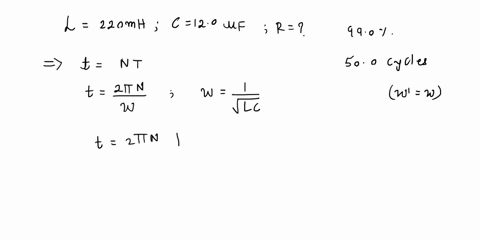 L = 220mH ; C = 12.0 μF ; R = ? 99.0 %.
=> t = NT 50.0 cycles
t = 2πN / W ; W = 1 / √LC (W' = W)
t = 2πN |